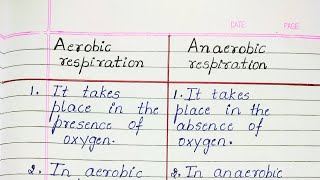 DATE PAGE
Aerobic respiration
Anaerobic respiration
1. It takes
place in the
presence of
oxygen.
1. It takes
place in the
absence of
oxygen.
2. In aerobic
2. In anaerobic